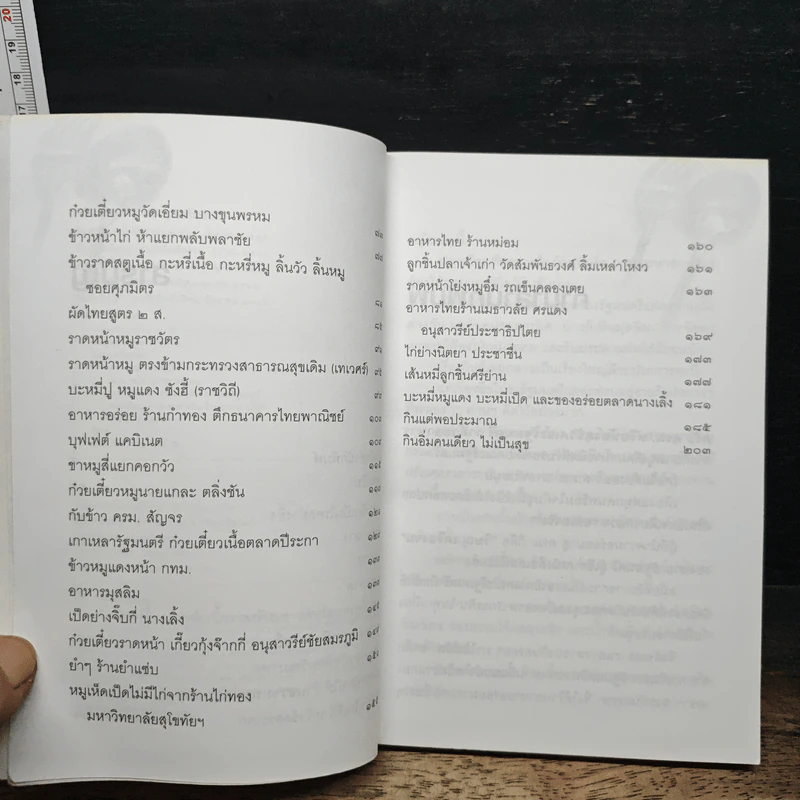 20
19
18
17
ก๋วยเตี๋ยวหมูวัดเอี่ยม บางขุนพรหม
ข้าวหน้าไก่ ห้าแยกพลับพลาชัย
ข้าวราดสตูเนื้อ กะหรี่เนื้อ กะหรี่หมู ลิ้นวัว ลิ้นหมู
ซอยศุภมิตร
ผัดไทยสูตร ๒ ส.
ราดหน้าหมูราชวัตร
ราดหน้าหมู ตรงข้ามกระทรวงสาธารณสุขเดิม (เทเวศร์)
บะหมี่ปู หมูแดง ซังฮี้ (ราชวิถี)
อาหารอร่อย ร้านกำทอง ตึกธนาคารไทยพาณิชย์
บุฟเฟต์ แคบิเนต
ขาหมูสี่แยกคอกวัว
ก๋วยเตี๋ยวหมูนายแกละ ตลิ่งชัน
กับข้าว ครม. สัญจร
เกาเหลารัฐมนตรี ก๋วยเตี๋ยวเนื้อตลาดปีระกา
ข้าวหมูแดงหน้า กทม.
อาหารมุสลิม
เป็ดย่างจิ๊บกี่ นางเลิ้ง
ก๋วยเตี๋ยวราดหน้า เกี๊ยวกุ้งจ๊ากกี่ อนุสาวรีย์ชัยสมรภูมิ
ยำๆ ร้านยำแซ่บ
หมูเห็ดเป็ดไม่มีไก่จากร้านไก่ทอง
มหาวิทยาลัยสุโขทัยฯ
อาหารไทย ร้านหม่อม ๑๖๐
ลูกชิ้นปลาเจ้าเก่า วัดสัมพันธวงศ์ ลิ้มเหล่าโหงว ๑๖๑
ราดหน้าโย่งหมูอึ๋ม รถเข็นคลองเตย ๑๖๓
อาหารไทยร้านเมธาวลัย ศรแดง
อนุสาวรีย์ประชาธิปไตย ๑๖๙
ไก่ย่างนิตยา ประชาชื่น ๑๗๓
เส้นหมี่ลูกชิ้นศรีย่าน ๑๗๗
บะหมี่หมูแดง บะหมี่เป็ด และของอร่อยตลาดนางเลิ้ง ๑๘๑
กินแต่พอประมาณ ๑๘๕
กินอิ่มคนเดียว ไม่เป็นสุข ๒๐๓